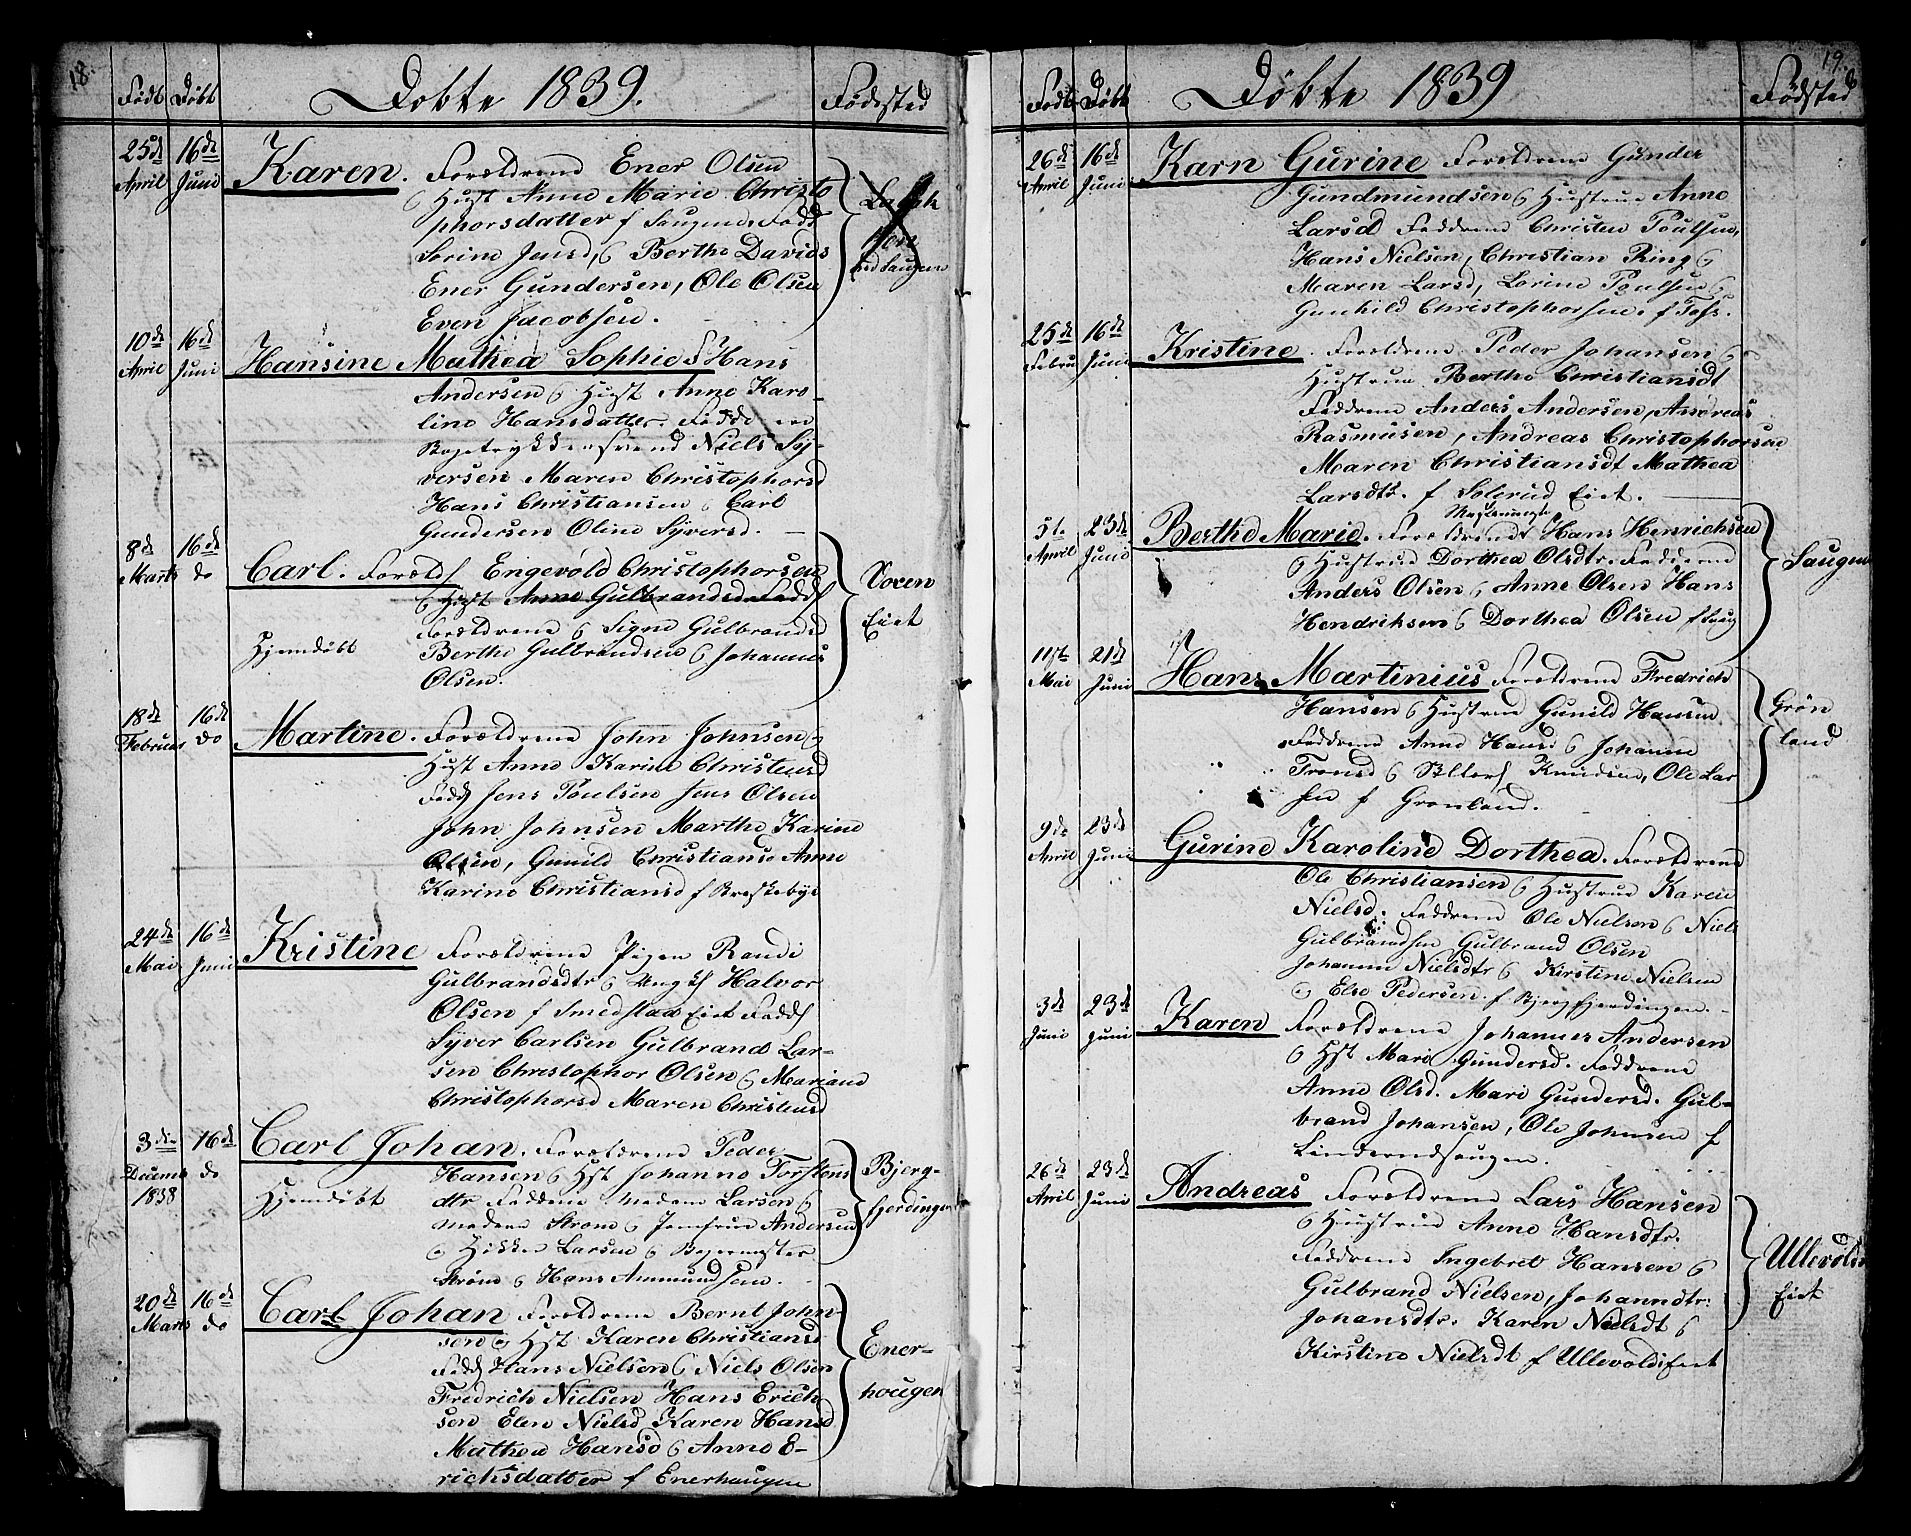 18.
Født Døbt Døbte 1839. Fødested
25de April 16de Juni
Karen. Forældrene Ener Olsen
& Hust Anne Marie Christo
phorsdatter f Saugene Fadd
Sorine Jensd, & Berthe Davids
Ener Gundersen, Ole Olsen
Even Jacobsen.
ved Saugene
10de April 16de Juni
Hansine Mathea Sophie F Hans
Andersen & Hust Anne Karo-
line Hansdatter. Fadde ere
Bogtrykkersvend Niels Sy-
versen Maren Christophersd
Hans Christiansen & Carl
Gundersen Oline Syversd.
8de Marts 16de do
Carl. Foræld Engevold Christophorsen
& Hust Anne Gulbrandsd Fadd
Forældrene & Signe Gulbrandsd
Hjemdøbt
Berthe Gulbrandsen & Johannes
Olsen.
Voxen
Eiet
18de Februar 16de do
Martine. Forældrene John Johnsen &
Hust Anne Karine Christensd
Fadd Jens Poulsen Jens Olsen
John Johnsen Marthe Karine
Olsen, Gunild Christians. Anne
Karine Christiansd f Briskebye
24de Mai 16de Juni
Kristine Forældrene Pigen Randi
Gulbrandsdtr & Ungk Halvor
Olsen f Smedstad Eiet Fadd
Syver Carlsen Gulbrand Lar-
sen Christophor Olsen & Mariane
Christophorsd Maren Christensd
3die Decembr 1838 16de do
Carl Johan. Forældrene Peder
Hansen & Hst Johanne Torstens
Hjemdøbt
dtr Faddrene Madam Larsen &
Madam Strøm & Jomfrue Andersen
& Larsen & Bogermester
Strøm & Hans Ammundsen.
Bjerg-
fjerdingen
20de Marts 16de do
Carl Johan Forældrene Bernt John-
sen & Hst Karen Christiansd
Fadd Hans Nielsen & Niels Olsen
Fredrich Nielsen Hans Erich
sen Elen Nielsd Karen Hansd
Mathea Hansd & Anne E-
richsdatter f Enerhaugen
Ener-
hougen
19.
Født Døbt Døbte 1839 Fødsted
26de April 16de Juni
Karn Gurine Forældrene Gunder
Gundmundsen & Hustrue Anne
Larsd Faddrene Christen Poulsen,
Hans Nielsen, Christian Ring &
Maren Larsd, Lorine Poulsen &
Gunhild Christophorsen. f
25de Februar 16de Juni
Kristine. Forældrene Peder Johansen &
Hustrue Berthe Christiansdt
Faddrene Anders Andersen, Andreas
Rasmusen, Andreas Christophorsen
Maren Christiansdt Mathea
Larsdtr. f Solerud Eiet.
5te April 23de Juni
Berthe Marie. Forældrene Hans Henrichsen
& Hustrue Dorthea Olsdtr. Faddrene
Anders Olsen & Anne Olsen Hans
Hendriksen & Dorthea Olsen f Saug
Saugene
11te Mai 21de Juni
Hans Martinius Forældrene Fredrich
Hansen & Hustrue Gunild Hansen
Faddrene Anne Hansd & Johanne
Tronsd & Knudsen, Ole Lar
sen f Grønland.
Grøn
land
9de April 23de Juni
Gurine Karoline Dorthea. Forældrene
Ole Christiansen & Hustrue Karen
Nielsd. Faddrene Ole Nielsen & Niels
Gulbrandsen Gulbrand Olsen
Johanne Nielsdtr & Kirstine Nielsen
& Else Pedersen f Bjergfjerdingen.
3de Juni 23de Juni
Karen Forældrene Johannes Andersen
& Hst Mari Gundersd. Faddrene
Anne Olsd. Mari Gundersd. Gul-
brand Johansen, Ole Johnsen f
Linderudsaugen.
26de April 23de Juni
Andreas Forældrene Lars Hansen
& Hustrue Anne Hansdtr.
Faddrene Ingebret Hansen &
Gulbrand Nielsen, Johanndtr.
Johansdtr. Karen Nielsdt &
Kirstine Nielsdt f Ullevoldseiet
Ullevolds
Eiet